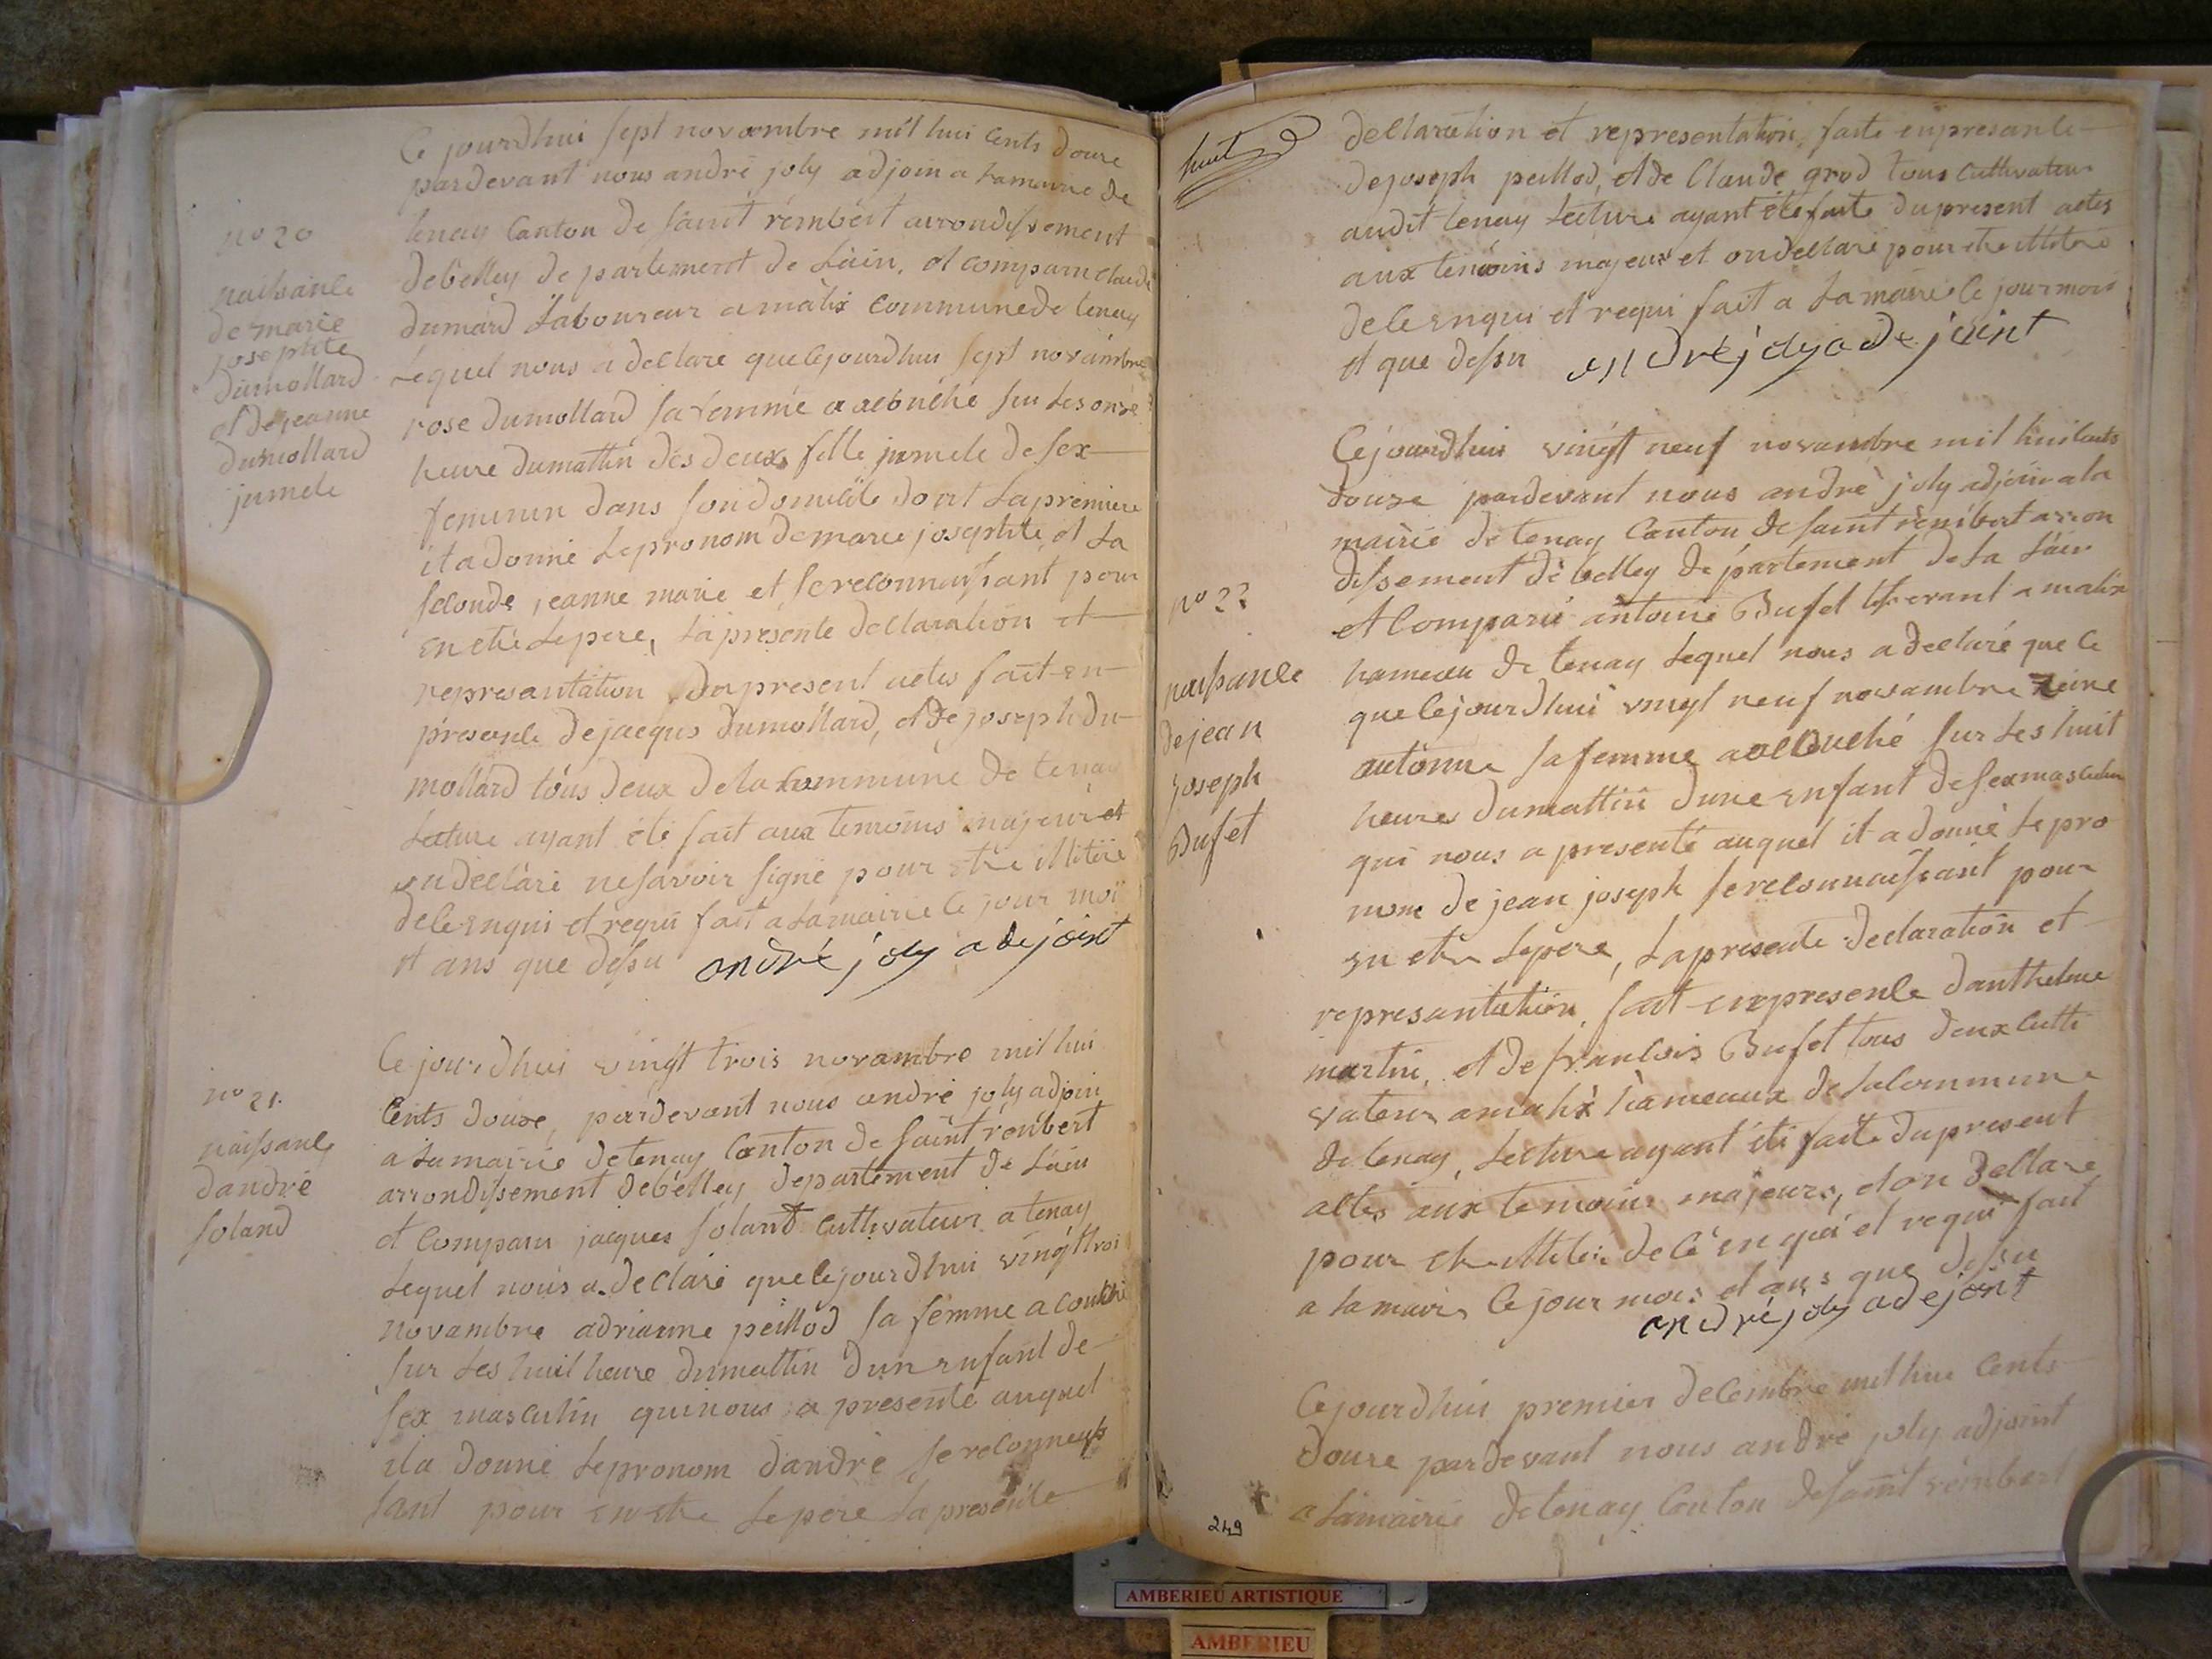 Ce jourdhui sept novambre mil hui cents douze
pardevant nous andré joly adjoin a lamairie de
tenay Canton de saint rémbért arrondissement
debelley departement de Lain, et comparu claude
dumard Laboureur a malix commune de tenay
Lequel nous a déclaré que lejourdhui sept novámbre
rose dumollard sa femme a acouché sur les onze
heure dumattin des deux fille jumele de sex
feminin dans son domicile dont Lapremiere
il a donné Lepronom demarie josephte et La
seconde, jeanne marie et sereconnaissant pour
en etre Lepere, Lapresente declaration et
represantation dupresent actes fait en
présence dejacques dumollard, et de joseph du
mollard tous deux dela commune de tenay
Lecture ayant été fait aux temoins majeur et
on déclaré nesavoir signé pour etre illitéré
de ce enqui et requi fait a Lamairie le jour moi
et ans que dessu andré joly adejoint
no 20
naissance
de marie
josephte
dumollard
et de jeanne
dumollard
jumele
Ce jourdhui vingt trois novambre mil hui
Cents douze, pardevant nous andré joly adjoin
a Lamairie detenay Canton de saint rénbert
arrondissement debélley departement de Lain
et Comparu jacques soland Cultivateur a tenay
Lequel nous a declaré que lejourdhui vingt troi
novambre adrianne peillod sa femme a couché
sur Les huit heure dumattin dun enfant de
sex masculin quinous a presenté auquel
ila donné Lepronom dandré se reconneys
sant pour en etre Lepere La presente
no 21.
naissance
dandré
soland
huit
declaration et representation, faite enpresance
dejoseph peillod, et de Claude grod tous Cultivateur
audit tenay Lecture ayant été faite dupresent actes
aux temoins majeur et ondeclaré pour etre illitéré
de ce enqui et requi fait a Lamairie le jour mois
et que dessu andré joly adejoint
Cejourdhui vingt neuf novambre mil huit cents
douze pardevant nous andré joly adjoin ala
mairie de tenay Canton de saint rémbert arron
dissement de belley departement de La Lain
et Comparu antoine Bufet tisserant a malix
hameau de tenay Lequel nous a declaré que le
que lejourdhui vingt neuf novambre
antonne sa femme a accouché sur Les huit
heures dumattin dune enfant de sexmasculin
qui nous a presenté auquel il a donné Le pro
nom de jean joseph se reconnaissant pour
en etre Lepere, Lapresente declaration et
represantation, fait enpresence danthelme
martin, et de francois Bufet tous deux culti
vateur a malix hameaux de la commune
de tenay, Lecture ayant été faite dupresent
actes aux temoins majeurs, et on declare
pour etre illiteré de ce enqui et requi fait
a La mairie Le jour mois et ans que dessu
andré joly adejoint
no 22
naissance
dejean
joseph
Bufet
Cejourdhui premier decembre mil hui cents
douze pardevant nous andré joly adjoint
a Lamairie detenay Canton desaint rémbert
249
AMBERIEU ARTISTIQUE
AMBERIEU